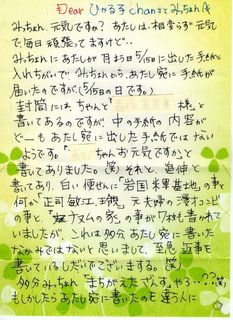 Dear ひかる子 chanことみっちゃんへ
みっちゃん、元気ですか? あたしは、相変らず元気
で、毎日頑張ってますけど‥
みっちゃんにあたしが 月まえ5/15日に出した手紙と
入れちがいで みっちゃんから、あたし宛に手紙が
届いたのですが(5/15日の日です。)
封筒には、ちゃんと「 様」と
書いてあるのですが、中の手紙の内容が
どーも あたし宛に出した手紙ではない
ようです。「 ちゃんお元気ですか」と
書いてありました。(笑) それと、追伸と
書いてあり、白い便せんに「岩国米軍基地」の事と
何か「正司敏江・玲児」元夫婦の漫才コンビ
の事と、「ベトナムの家」の事が7枚も書かれて
いましたが、これは多分あたし宛に書いた
なかみではないと思いまして、至急返事を
書いているしだいでございまする。(笑)
多分みっちゃん「まちがえたでんす。やろ‥??(笑)
もしかしたらあたし宛に書いたのを違う人に